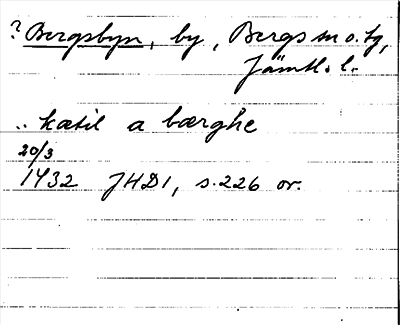 ? Bergsbyn, by, Bergs sn o. tg,
Jämtl. l.
.. kætil a bærghe
20/3
1432 JHD1, s. 226 or.